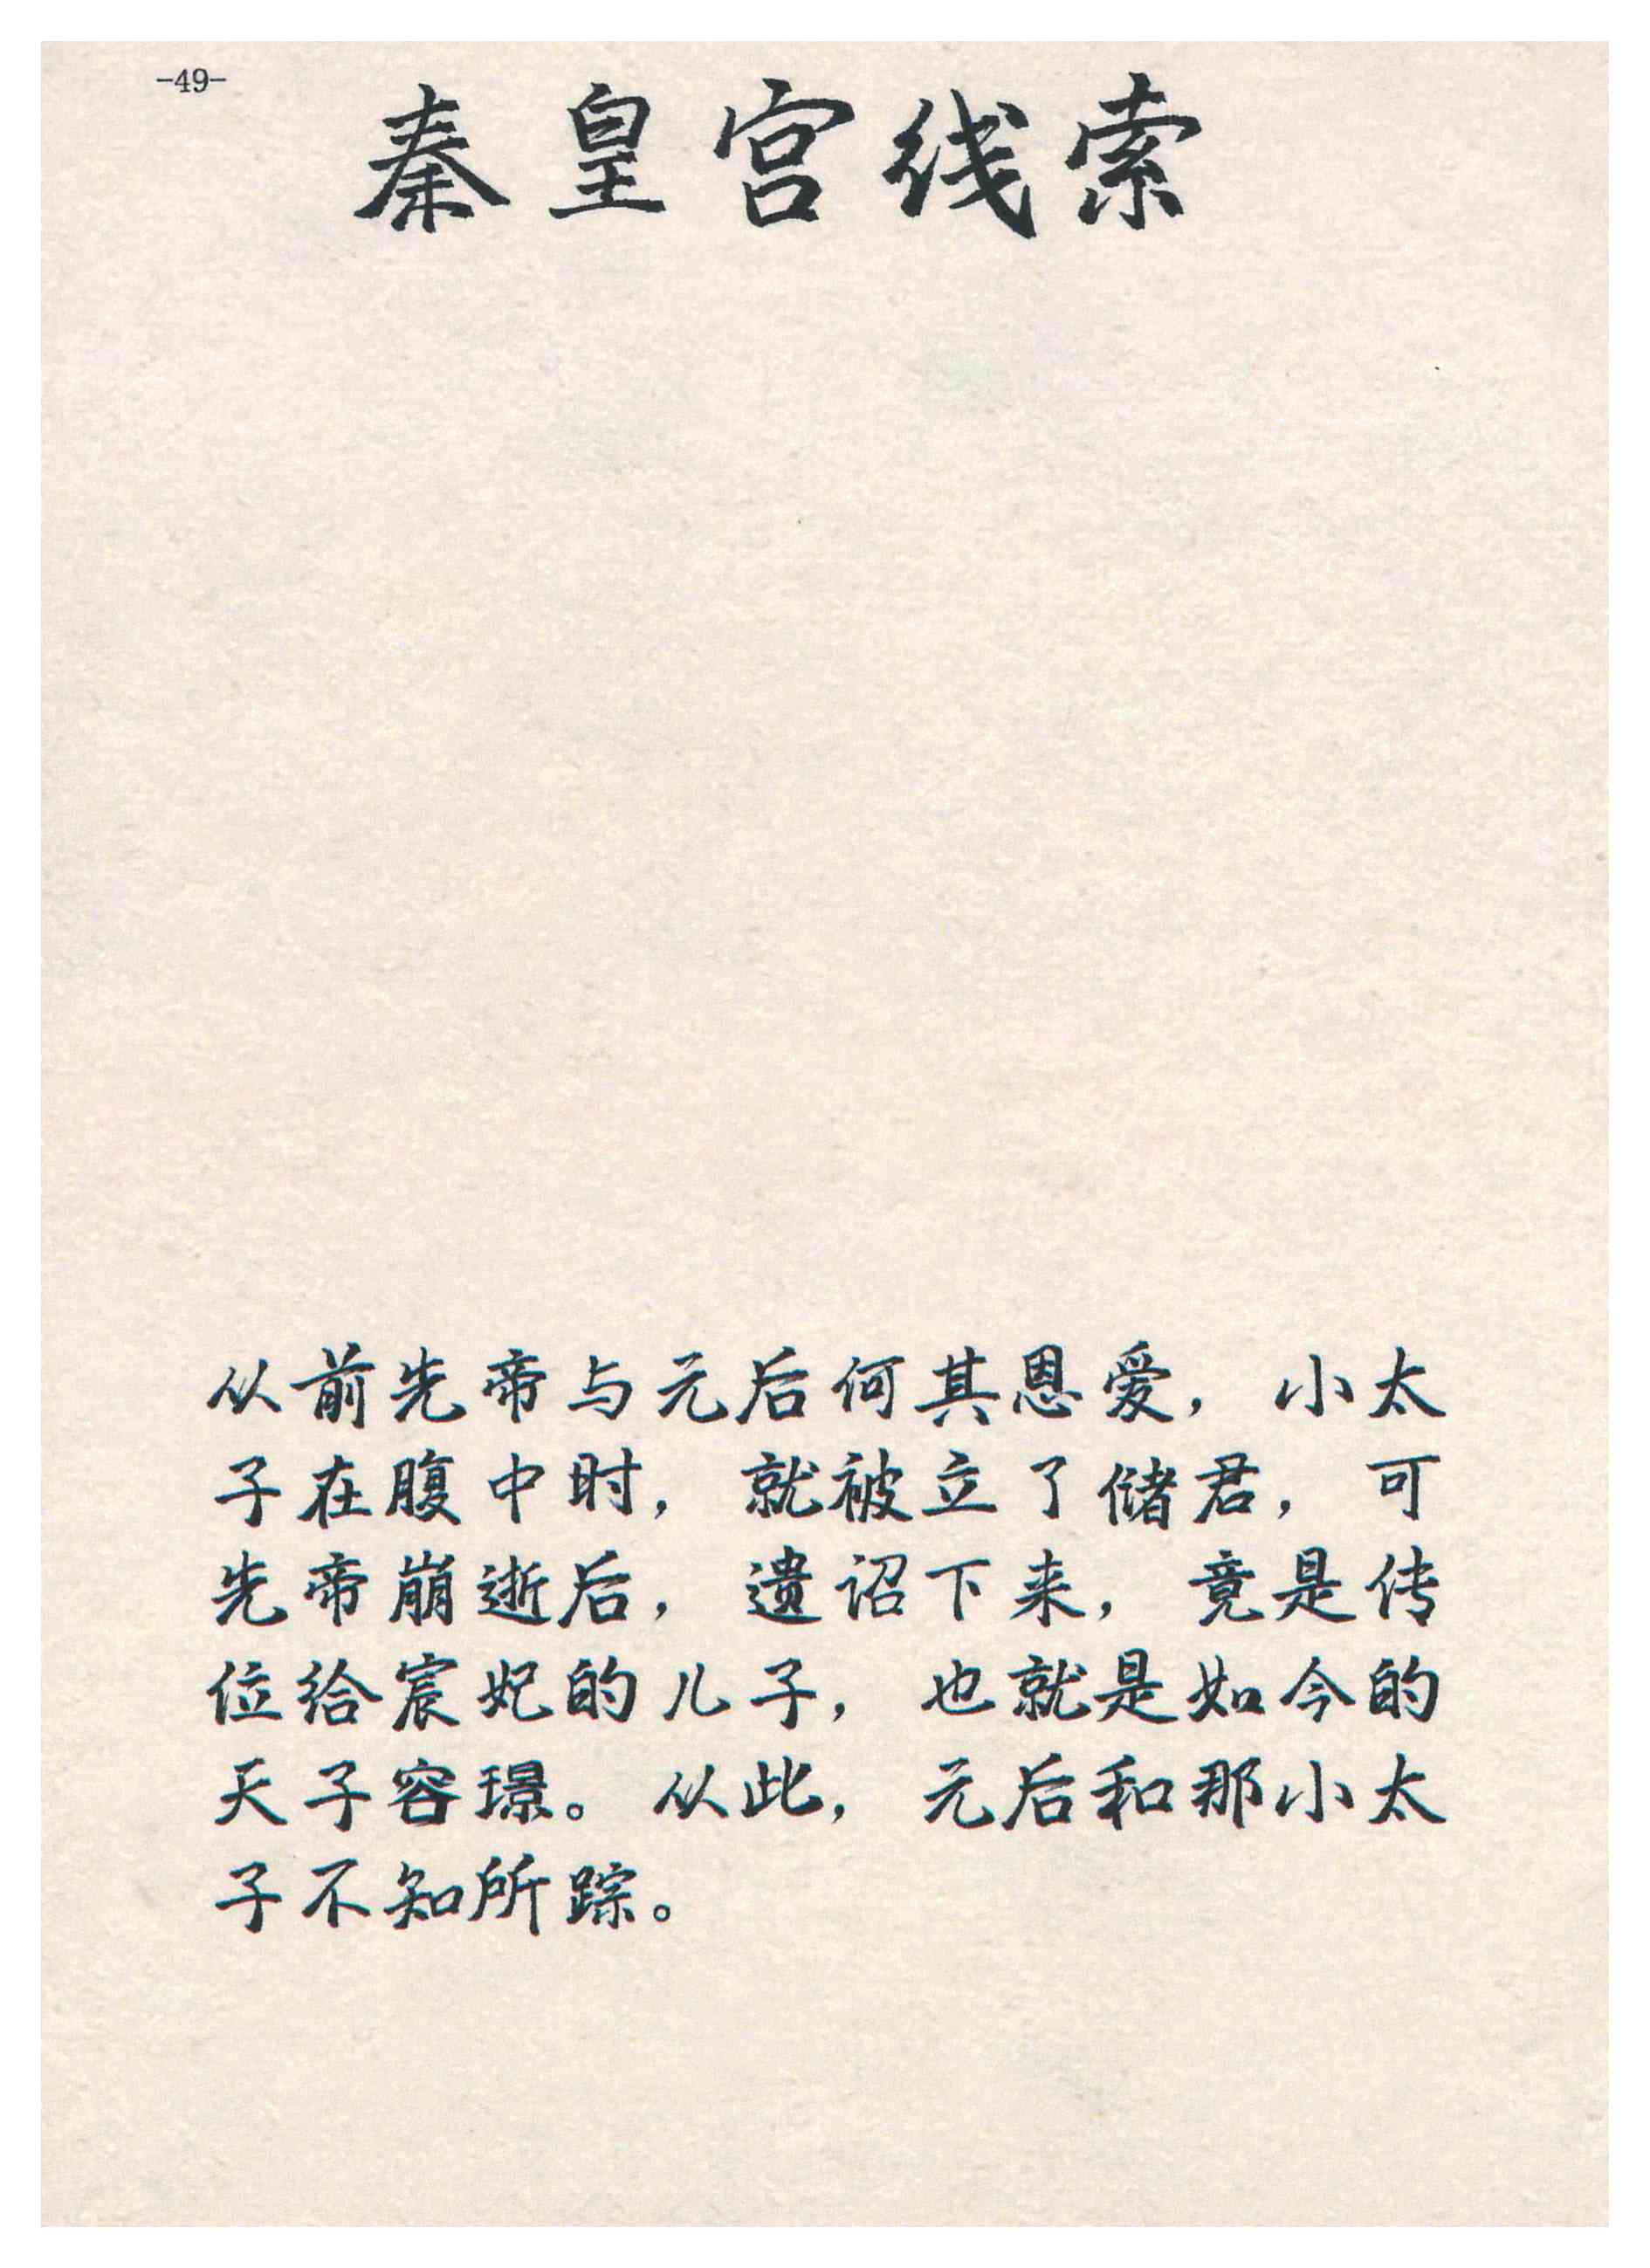 -49-
秦皇宫线索
从前先帝与元后何其恩爱，小太
子在腹中时，就被立了储君，可
先帝崩逝后，遗诏下来，竟是传
位给宸妃的儿子，也就是如今的
天子容璟。从此，元后和那小太
子不知所踪。